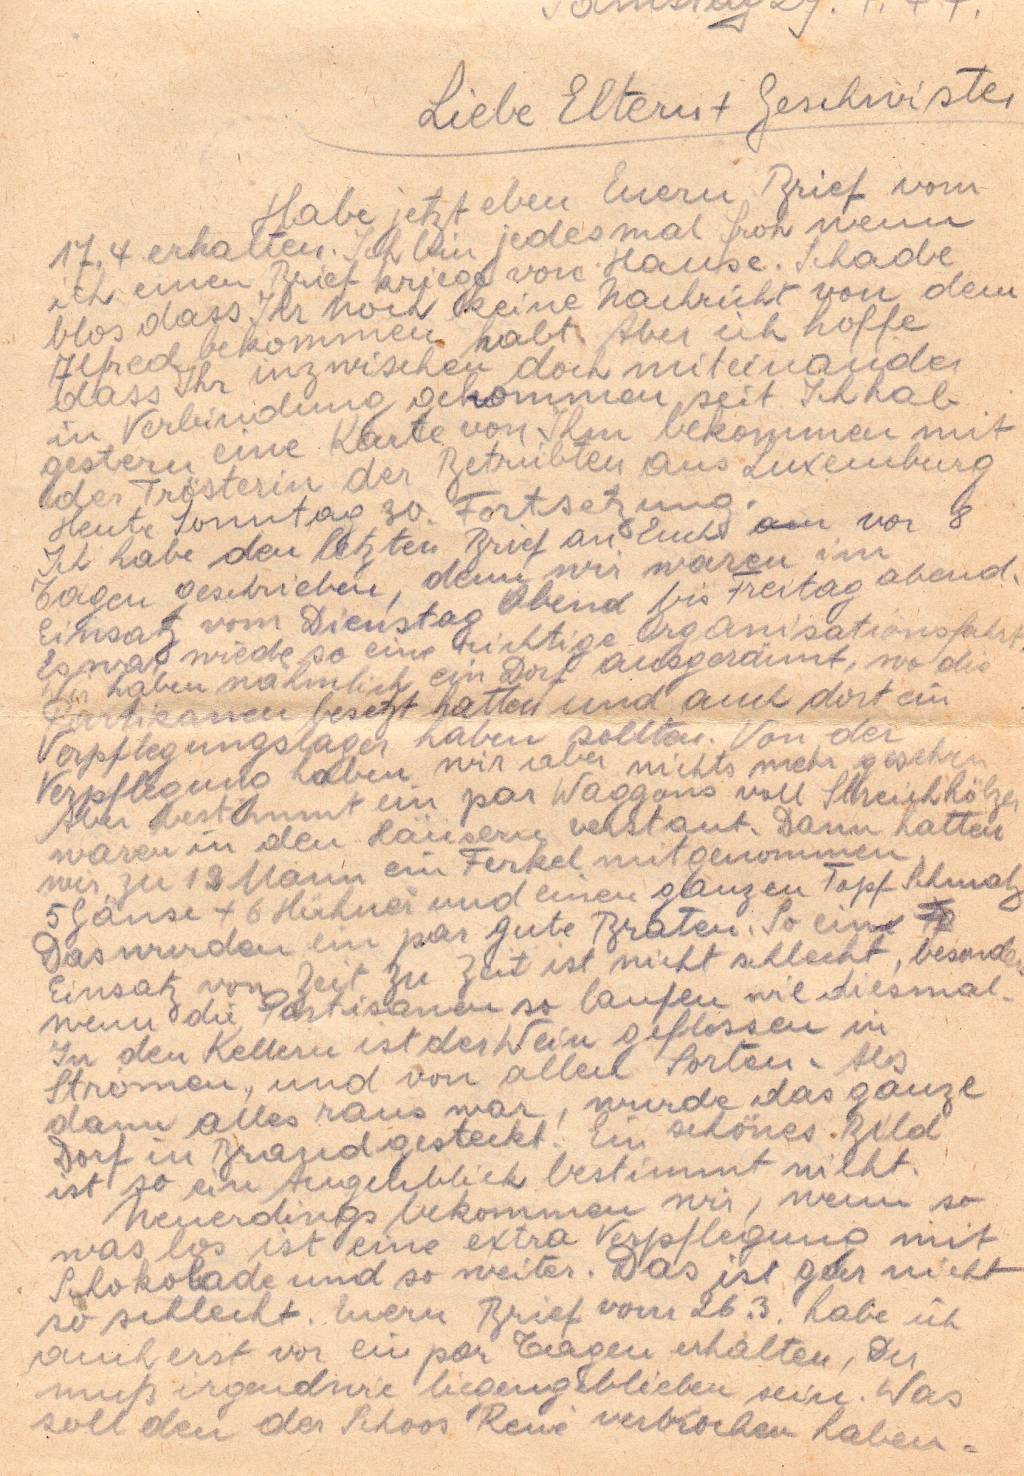 Samstag 29. 4. 44.
Liebe Eltern + Geschwister
Habe jetzt eben Euern Brief vom
17.4 erhalten. Ich bin jedesmal froh wenn
ich einen Brief kriege von Hause. Schade
blos dass Ihr noch keine Nachricht von dem
Alfred bekommen habt. Aber ich hoffe
dass Ihr inzwischen doch miteinander
in Verbindung gekommen seit Ich hab
gestern eine Karte von Ihm bekommen mit
der Trösterin der Betrübten aus Luxemburg
Heute Sonntag 30. Fortsetzung.
Ich habe den letzten Brief an Euch vor 8
Tagen geschrieben, denn wir waren im
Einsatz vom Dienstag Abend bis Freitag abend.
Es war wiede so eine richtige Organisationsfahrt.
Wir haben nähmlich ein Dorf ausgeräumt, wo die
Partisanen besetzt hatten und auch dort ein
Verpflegungslager haben sollten. Von der
Verpflegung haben wir aber nichts mehr gesehen
Aber bestimmt ein par Waggons voll Streichhölzer
waren in den Häusern verstaut. Dann hatten
wir zu 12 Mann ein Ferkel mitgenommen
5 Gänse + 6 Hühner und einen ganzen Topf Schmalz
Das wurden ein par gute Braten. So ein
Einsatz von Zeit zu Zeit ist nicht schlecht, besonders
wenn die Partisanen so laufen wie diesmal.
In den Kellern ist der Wein geflossen in
Strömen, und von allen Sorten. Als
dann alles raus war, wurde das ganze
Dorf in Brand gesteckt. Ein schönes Bild
ist so ein Augenblick bestimmt nicht.
Neuerdings bekommen wir, wenn so
was los ist eine extra Verpflegung mit
Schokolade und so weiter. Das ist gar nicht
so schlecht. Euern Brief vom 26.3. habe ich
auch erst vor ein par Tagen erhalten, Der
muß irgendwie liegengeblieben sein. Was
soll den der Schoos René verbrochen haben.